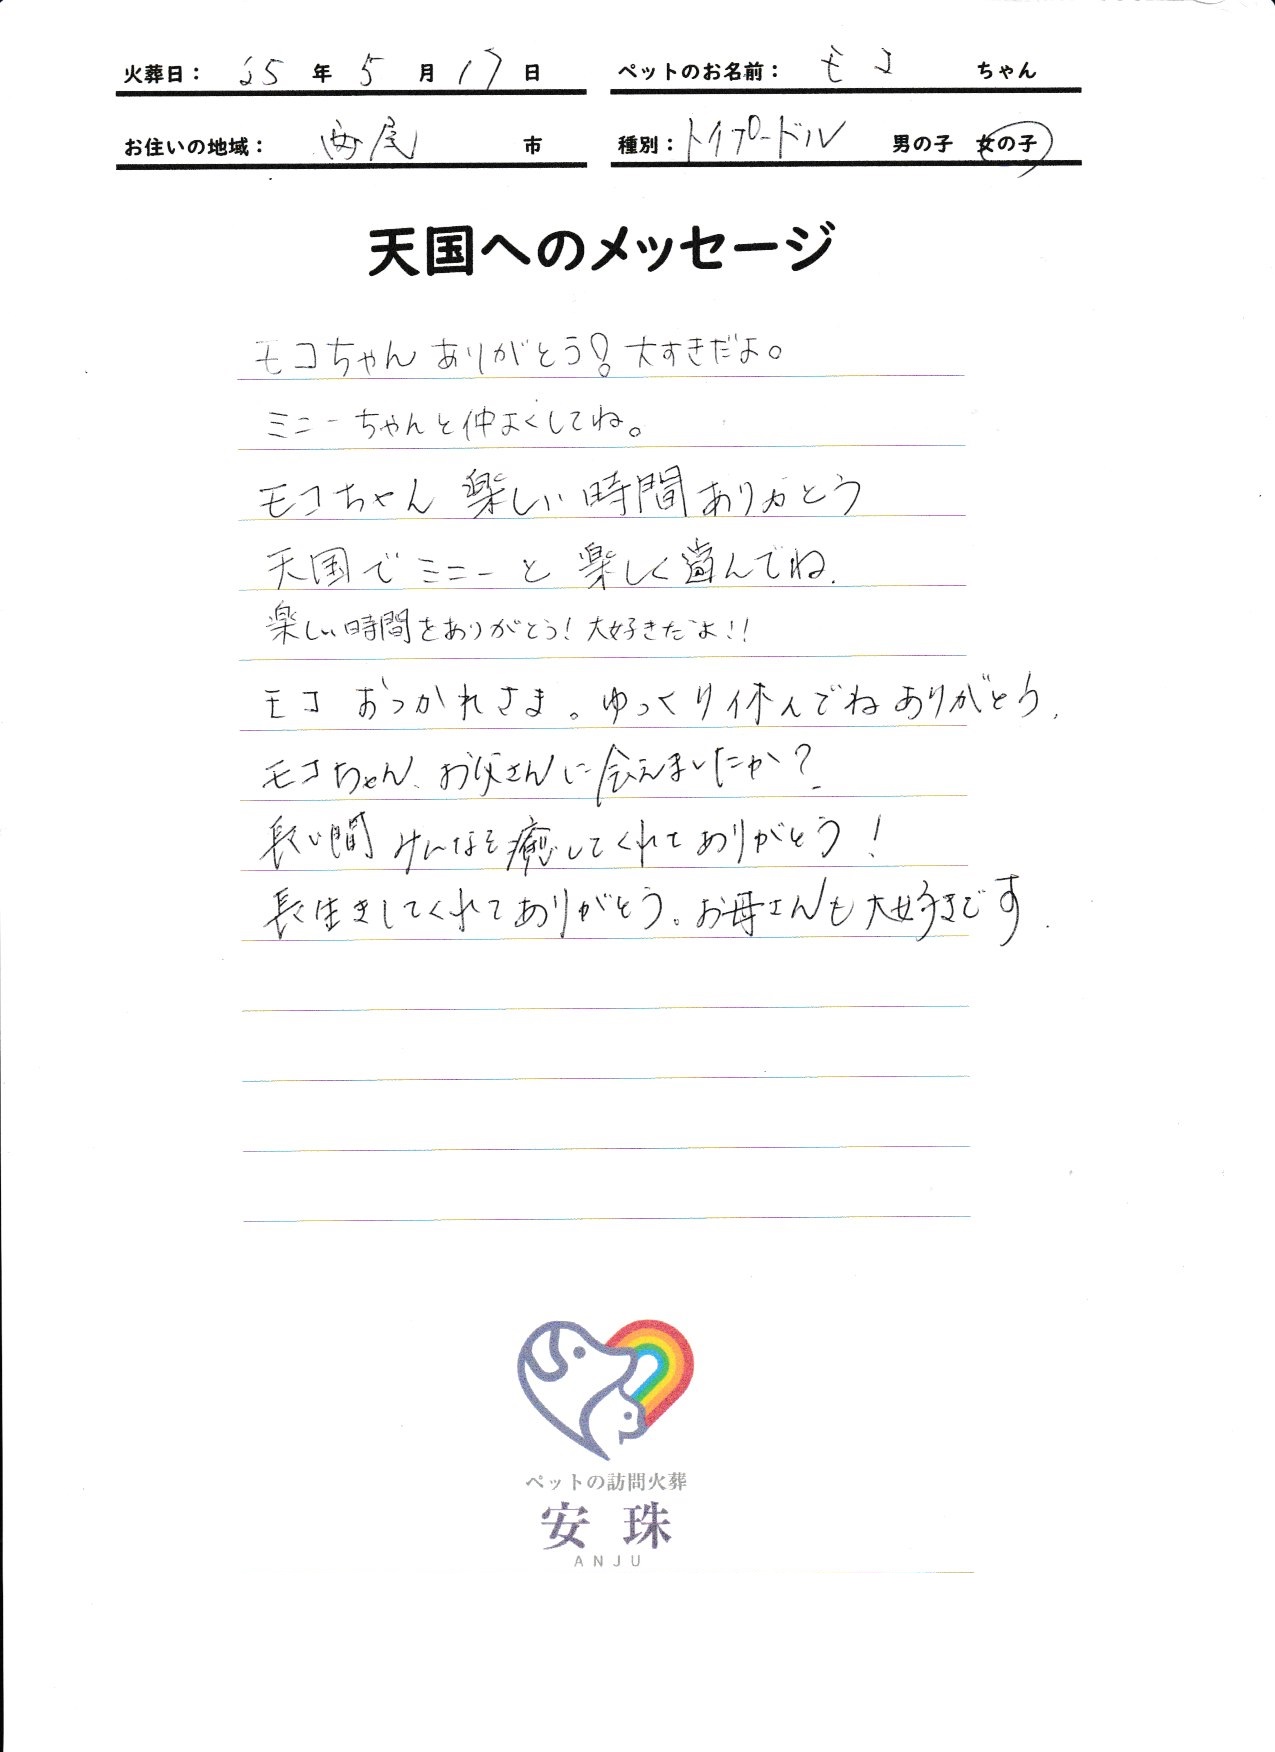 火葬日： 25 年 5 月 17 日 ペットのお名前： モコ ちゃん
お住いの地域： 西尾 市 種別： トイプードル 男の子 女の子
天国へのメッセージ
モコちゃん ありがとう! 大すきだよ。
ミニーちゃんと仲よくしてね。
モコちゃん 楽しい時間ありがとう
天国でミニーと 楽しく遊んでね.
楽しい時間をありがとう! 大好きだよ!!
モコ おつかれさま。ゆっくり休んでねありがとう.
モコちゃん、お父さんに会えましたか?
長い間 みんなを癒してくれてありがとう!
長生きしてくれてありがとう。お母さんも大好きです.
ペットの訪問火葬
安珠
ANJU